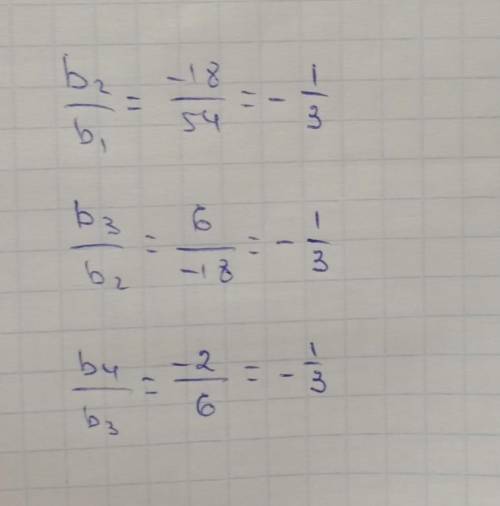 b₂/b₁ = -18/54 = -1/3
b₃/b₂ = 6/-18 = -1/3
b₄/b₃ = -2/6 = -1/3